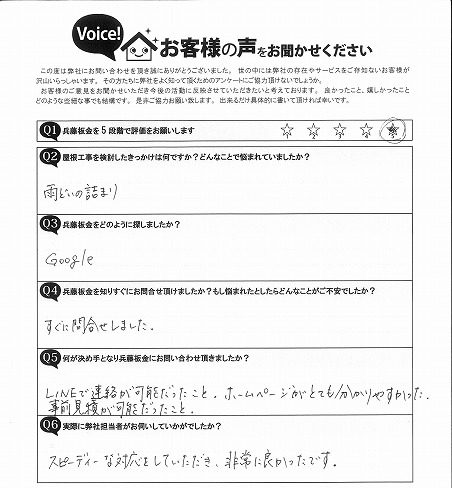 Voice!
お客様の声をお聞かせください
この度は弊社にお問い合わせを頂き誠にありがとうございました。 世の中には弊社の存在やサービスをご存知ないお客様が
沢山いらっしゃいます。 その方たちに弊社をよく知って頂くためのアンケートにご協力頂けないでしょうか。
お客様のご意見をお聞かせいただき今後の活動に反映させていただきたいと考えております。 良かったこと、嬉しかったこと
どのような些細な事でも結構です。 是非ご協力お願い致します。 出来るだけ具体的に書いて頂ければ幸いです。
Q1 兵藤板金を5段階で評価をお願いします ☆ ☆ ☆ ☆ ★
Q2 屋根工事を検討したきっかけは何ですか？どんなことで悩まれていましたか？
雨どいの詰まり
Q3 兵藤板金をどのように探しましたか？
Google
Q4 兵藤板金を知りすぐにお問合せ頂けましたか？もし悩まれたとしたらどんなことがご不安でしたか？
すぐに問合せしました。
Q5 何が決め手となり兵藤板金にお問い合わせ頂きましたか？
LINEで連絡が可能だったこと。ホームページがとても分かりやすかった。
事前見積が可能だったこと。
Q6 実際に弊社担当者がお伺いしていかがでしたか？
スピーディーな対応をしていただき、非常に良かったです。